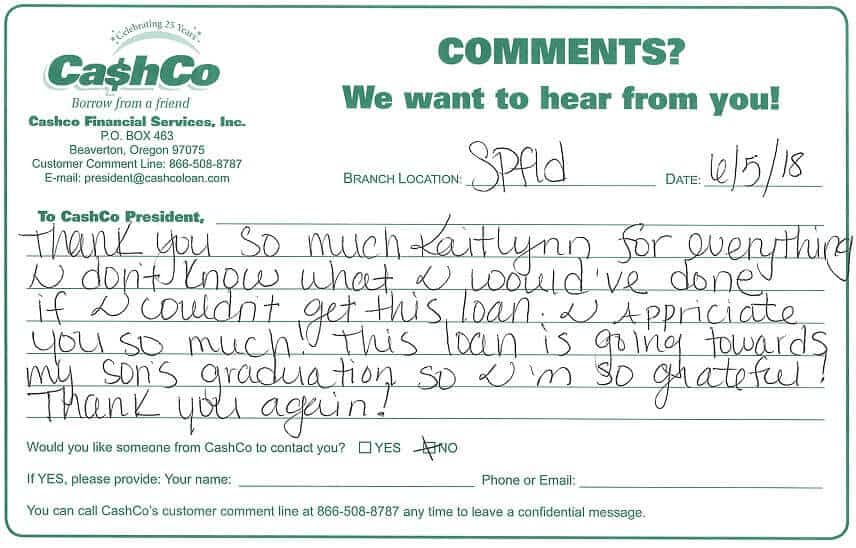 Celebrating 25 Years
Ca$hCo
Borrow from a friend
Cashco Financial Services, Inc.
P.O. BOX 463
Beaverton, Oregon 97075
Customer Comment Line: 866-508-8787
E-mail: president@cashcoloan.com
COMMENTS?
We want to hear from you!
BRANCH LOCATION: SPfld
DATE: 6/5/18
To CashCo President,
Thank you so much Kaitlynn for everything
I don't know what I would've done
if I couldn't get this loan. I Appriciate
you so much! This loan is going towards
my son's graduation so I'm so grateful!
Thank you again!
Would you like someone from CashCo to contact you? YES NO
If YES, please provide: Your name: Phone or Email:
You can call CashCo's customer comment line at 866-508-8787 any time to leave a confidential message.